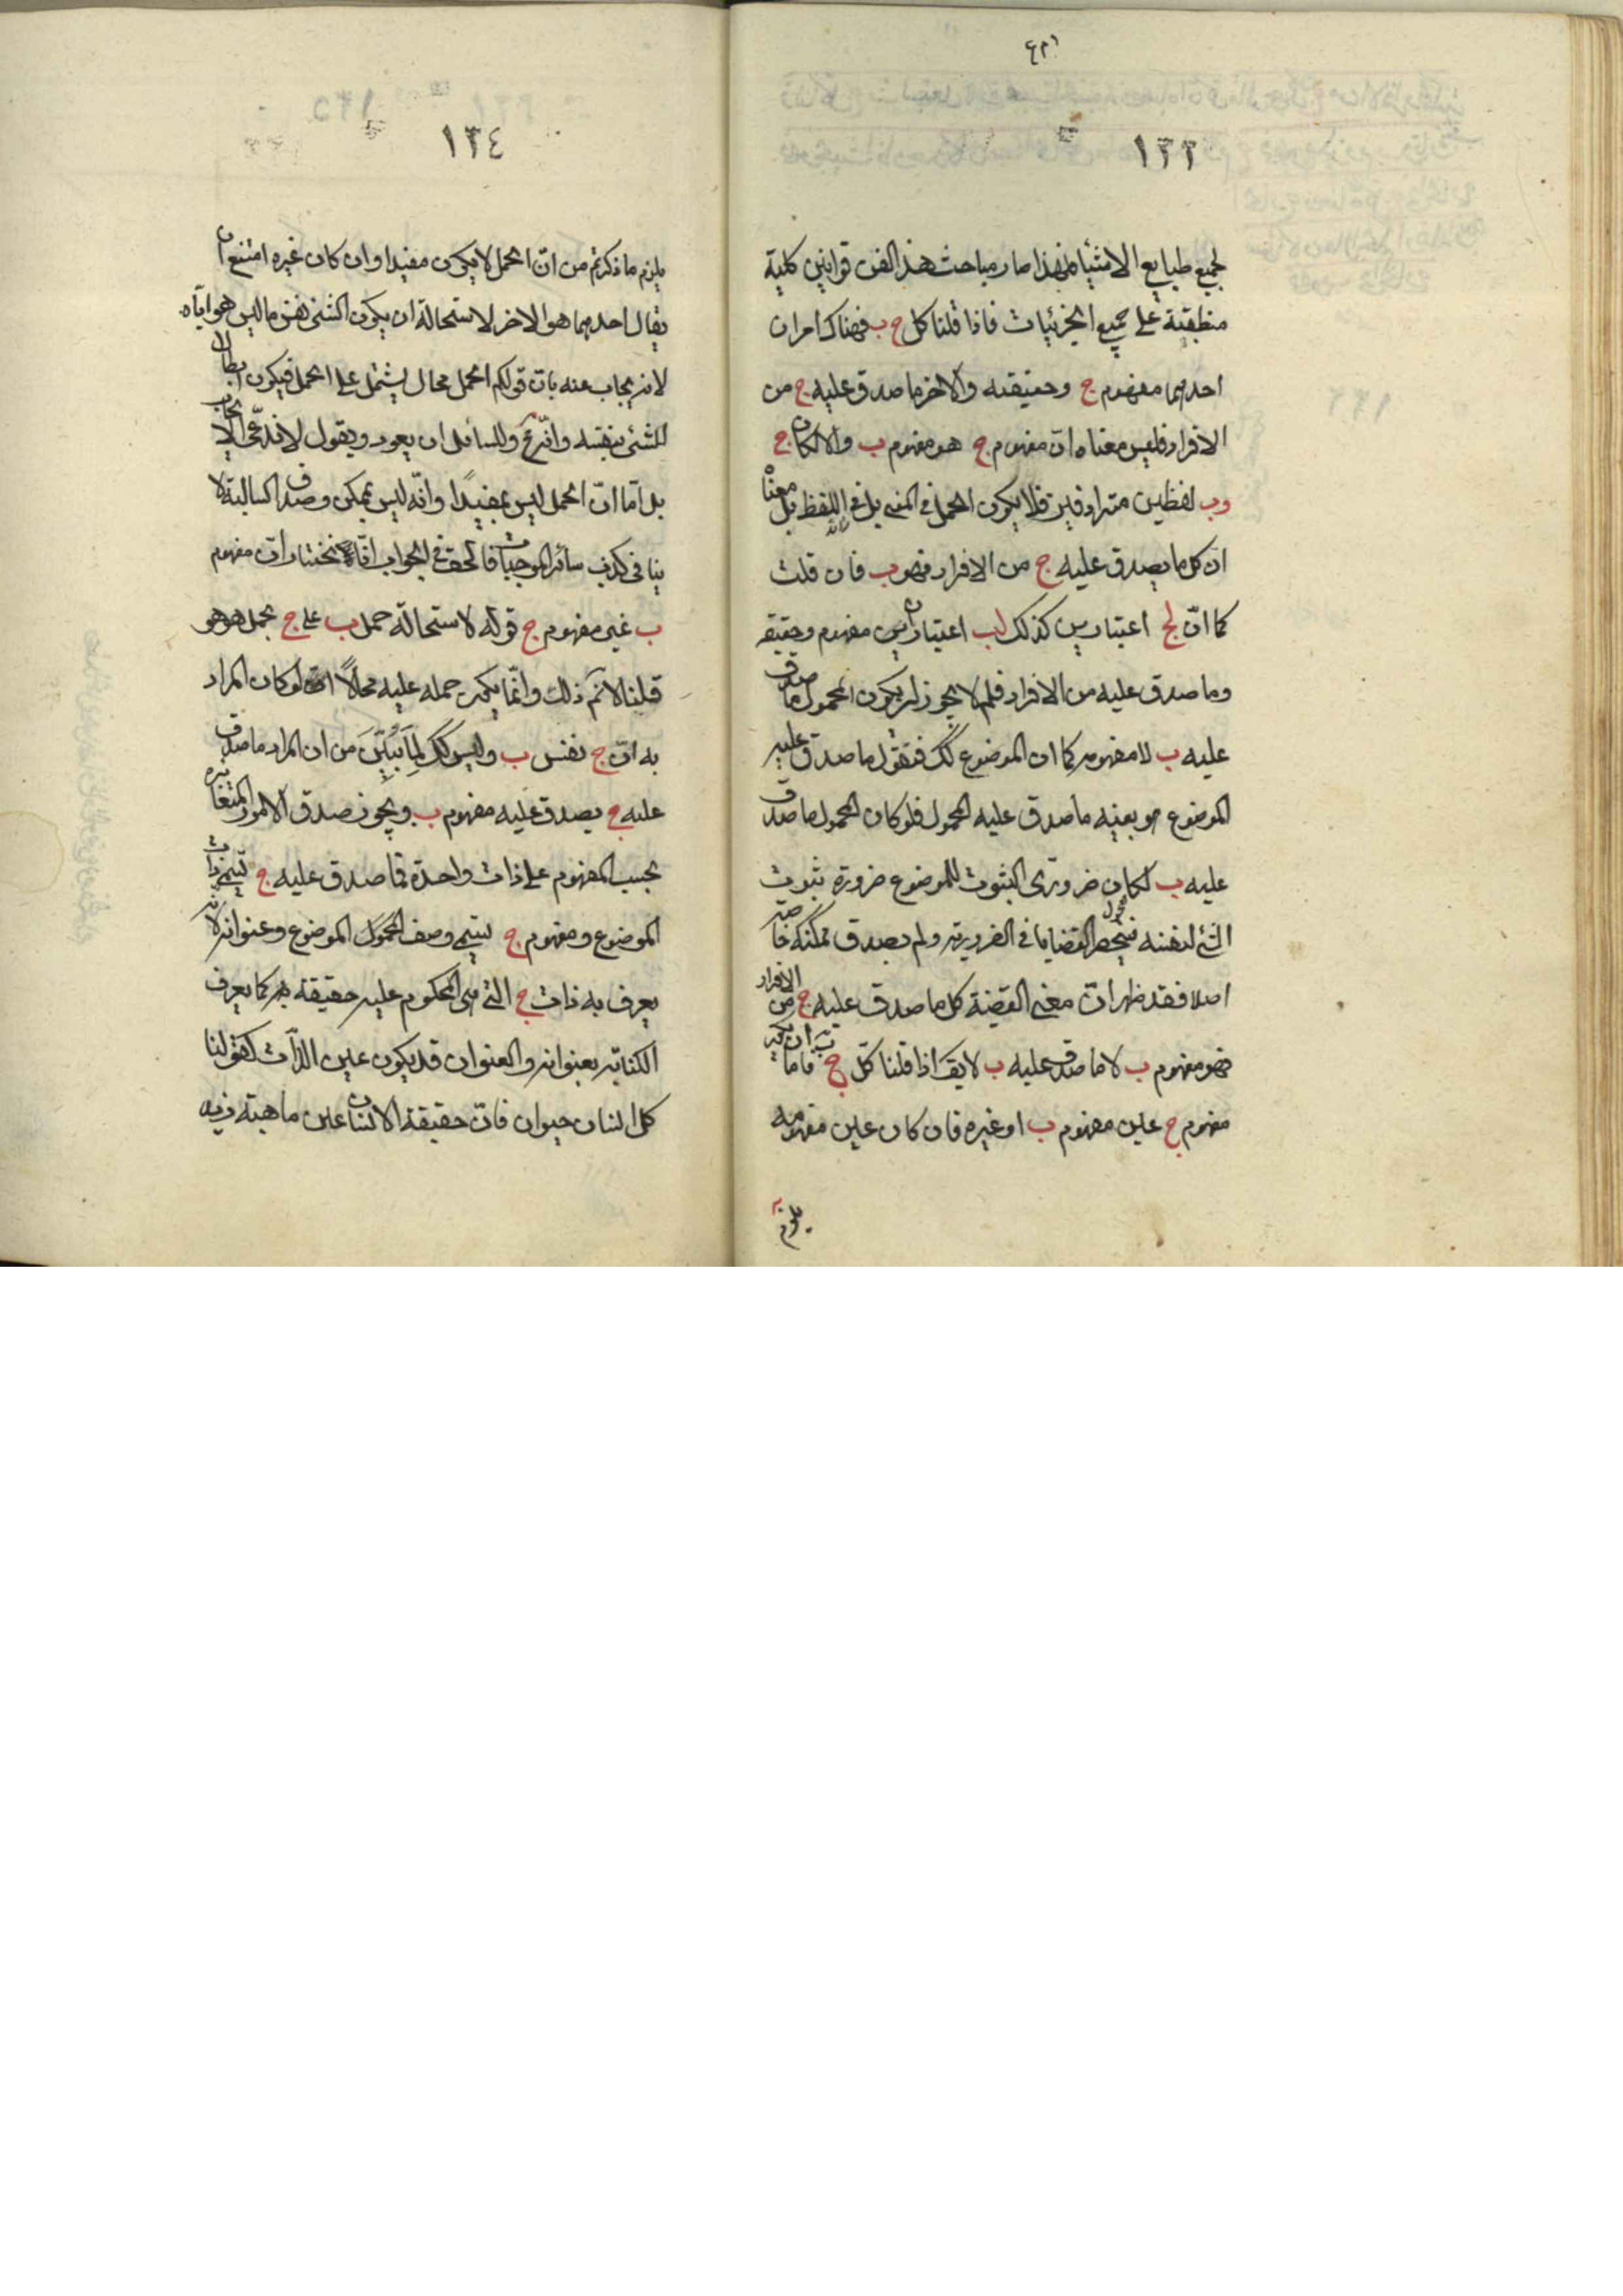 ١٣٣
لجميع طبايع الاشياء فلهذا صار مباحث هذا الفن قوانين كلية
منطبقة على جميع الجزئيات فاذا قلنا كل ج ب فهناك امران
احديهما مفهوم ج وحقيقته والاخر ما صدق عليه ج من
الافراد فليس معناه ان مفهوم ج هو مفهوم ب والا لكان ج
وب لفظين مترادفين فلا يكون الحمل فى المعنى بل فى اللفظ بل معناه
ان كل ما يصدق عليه ج من الافراد فهو ب فان قلت
كما انّ لج اعتبارين كذلك لب اعتباران مفهوم وحقيقة
وما صدق عليه من الافراد فلم لا يجوز ان يكون المحمول ما صدق
عليه ب لا مفهومه كما ان الموضوع كك فنقول ما صدق عليه
الموضوع هو بعينه ما صدق عليه المحمول فلو كان المحمول ما صدق
عليه ب لكان ضرورى الثبوت للموضوع ضرورة ثبوت
الشئ لنفسه فينحصر القضايا فى الضرورية ولم يصدق ممكنة خاصة
اصلا فقد ظهر انّ معنى القضية كل ما صدق عليه ج من الافراد
فهو مفهوم ب لا ما صدق عليه ب لا يقـ اذا قلنا كلّ ج ب فاما ان يكون
مفهوم ج عين مفهوم ب او غيره فان كان عين مفهومه
يلزم
١٣٤
يلزم ما ذكرتم من انّ الحمل لا يكون مفيدا وان كان غيره امتنع ان
يقال احديهما هو الاخر لاستحالة ان يكون الشئ نفس ما ليس هو اياه
لانه يجاب عنه بان قولكم الحمل محال يشتمل على الحمل فيكون ابطال
للشئ بنفسه وانّه مح وللسائل ان يعود ويقول لا ندّعى الايجاب
بل اما انّ الحمل ليس بمفيدٍ او انّه ليس بممكن وصدق السالبة لا
ينافى كذب سائر الموجبات فالحق فى الجواب انّا نختار انّ مفهوم
ب غير مفهوم ج قوله لاستحالة حمل ب على ج بحمل هو هو
قلنا لا نم ذلك وانّما يكون حمله عليه محالاً لو كان المراد
به انّ ج نفس ب وليس كك لما تبيّن من ان المراد ما صدق
عليه ج يصدق عليه مفهوم ب ويجوز صدق الامور المتغايرة
بحسب المفهوم على ذات واحدة فما صدق عليه ج يسمى ذات
الموضوع ومفهوم ج يسمى وصف الموضوع وعنوانه لانه
يعرف به ذات ج التى هى المحكوم عليه حقيقة كما يعرف
الكتاب بعنوانه والعنوان قد يكون عين الذات كقولنا
كل انسان حيوان فانّ حقيقة الانسان عين ماهية زيد